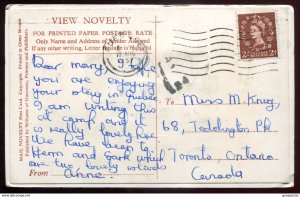 VIEW NOVELTY
FOR PRINTED PAPER POSTAGE RATE
Only Name and Address of Sender Allowed
If any other writing, Letter Postage is Required
Dear Mary,
you are enjoying
your stay in
I am writing this
at camp and it
is really lovely here
We have been to
Herm and Sark which
are two lovely islands
From Anne
To Miss M. Krug
68, Teddington Pk
Toronto, Ontario
Canada
MAIL NOVELTY Post Card.